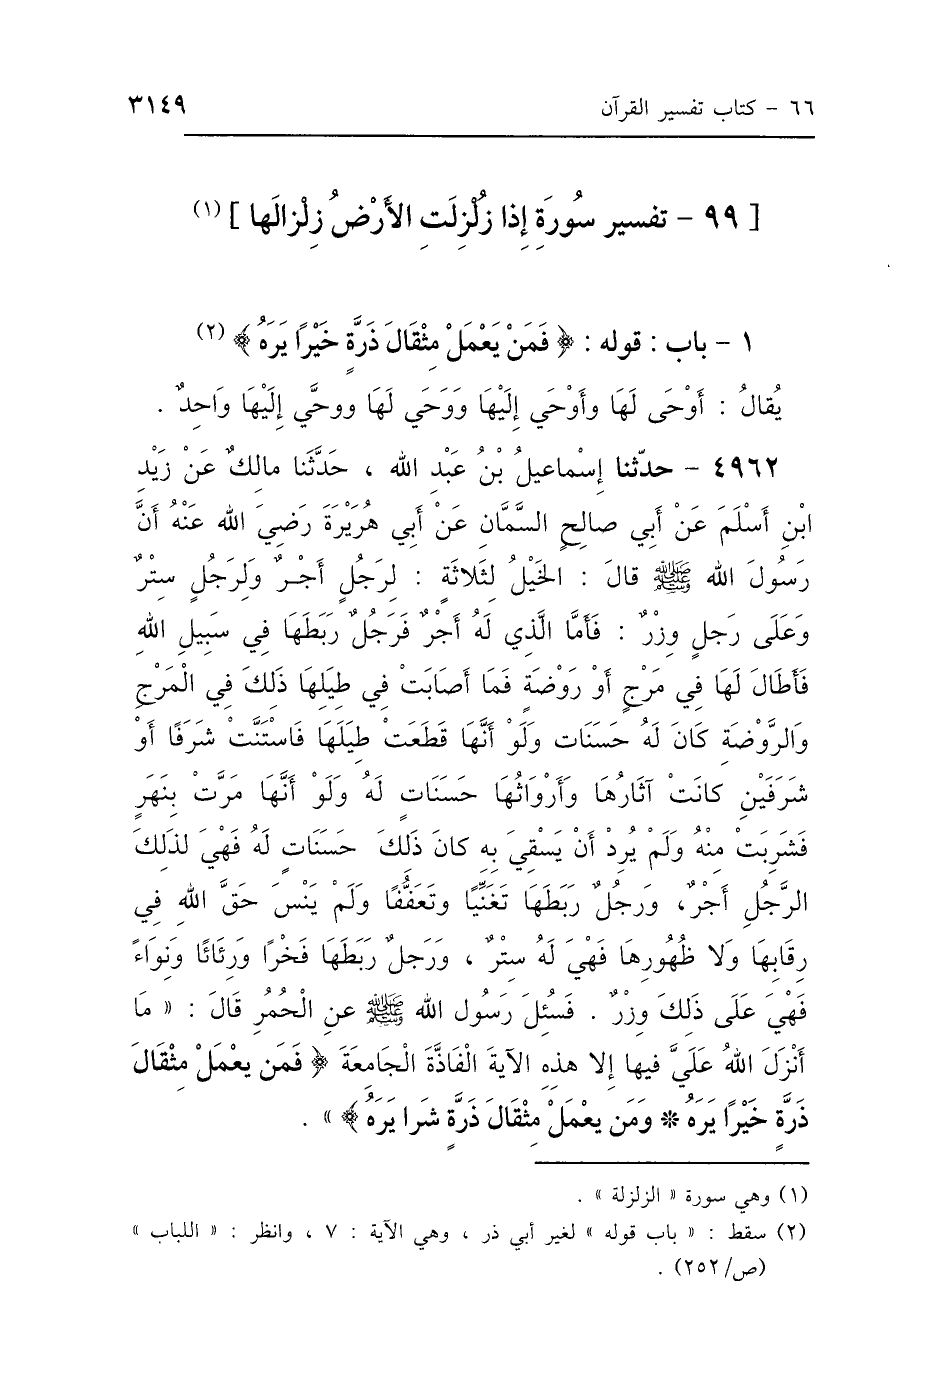 ٦٦ - كتاب تفسير القرآن ٣١٤٩
[ ٩٩ - تفسير سُورَةِ إِذا زُلْزِلَتِ الأَرْضُ زِلْزالَها ] (١)
١ - باب : قوله : ﴿ فَمَنْ يَعْمَلْ مِثْقَالَ ذَرَّةٍ خَيْرًا يَرَهُ ﴾ (٢)
يُقالُ : أَوْحَى لَهَا وأَوْحَى إِلَيْهَا وَوَحَى لَهَا ووحَّى إِلَيْهَا وَاحِدٌ .
٤٩٦٢ - حدّثنا إِسْماعيلُ بْنُ عَبْدِ الله ، حَدَّثَنا مالكٌ عَنْ زَيْدِ
ابْنِ أَسْلَمَ عَنْ أَبي صالحٍ السَّمَّانِ عَنْ أَبي هُرَيْرَةَ رَضِيَ الله عَنْهُ أَنَّ
رَسُولَ الله ﷺ قالَ : الخَيْلُ لِثَلاثَةٍ : لِرَجُلٍ أَجْرٌ وَلِرَجُلٍ سِتْرٌ
وَعَلَى رَجُلٍ وِزْرٌ : فَأَمَّا الَّذي لَهُ أَجْرٌ فَرَجُلٌ رَبَطَهَا فِي سَبِيلِ اللهِ
فَأَطَالَ لَهَا فِي مَرْجٍ أَوْ رَوْضَةٍ فَمَا أَصَابَتْ فِي طِيَلِهَا ذَلِكَ فِي الْمَرْجِ
وَالرَّوْضَةِ كَانَ لَهُ حَسَنَاتٍ وَلَوْ أَنَّهَا قَطَعَتْ طِيَلَهَا فَاسْتَنَّتْ شَرَفًا أَوْ
شَرَفَيْنِ كانَتْ آثارُهَا وَأَرْوَاثُهَا حَسَنَاتٍ لَهُ وَلَوْ أَنَّهَا مَرَّتْ بِنَهَرٍ
فَشَرِبَتْ مِنْهُ وَلَمْ يُرِدْ أَنْ يَسْقِيَ بِهِ كانَ ذَلِكَ حَسَنَاتٍ لَهُ فَهْيَ لذلِكَ
الرَّجُلِ أَجْرٌ، وَرَجُلٌ رَبَطَهَا تَغَنِّيًا وتَعَفُّفًا وَلَمْ يَنْسَ حَقَّ اللهِ فِي
رِقابِهَا وَلا ظُهُورِهَا فَهْيَ لَهُ سِتْرٌ ، وَرَجلٌ رَبَطَهَا فَخْرًا وَرِئَائًا وَنِوَاءً
فَهْيَ عَلَى ذَلِكَ وِزْرٌ . فَسُئِلَ رَسُول الله ﷺ عنِ الْحُمُرِ قَالَ : « مَا
أَنْزَلَ اللهُ عَلَيَّ فيها إلا هذهِ الآيةَ الْفَاذَّةَ الْجَامِعَةَ ﴿ فَمَن يعْمَلْ مِثْقَالَ
ذَرَّةٍ خَيْرًا يَرَهُ * وَمَن يعْمَلْ مِثْقَالَ ذَرَّةٍ شَرا يَرَهُ ﴾ » .
(١) وهي سورة « الزلزلة » .
(٢) سقط : « باب قوله » لغير أبي ذر ، وهي الآية : ٧ ، وانظر : « اللباب »
(ص/٢٥٢) .